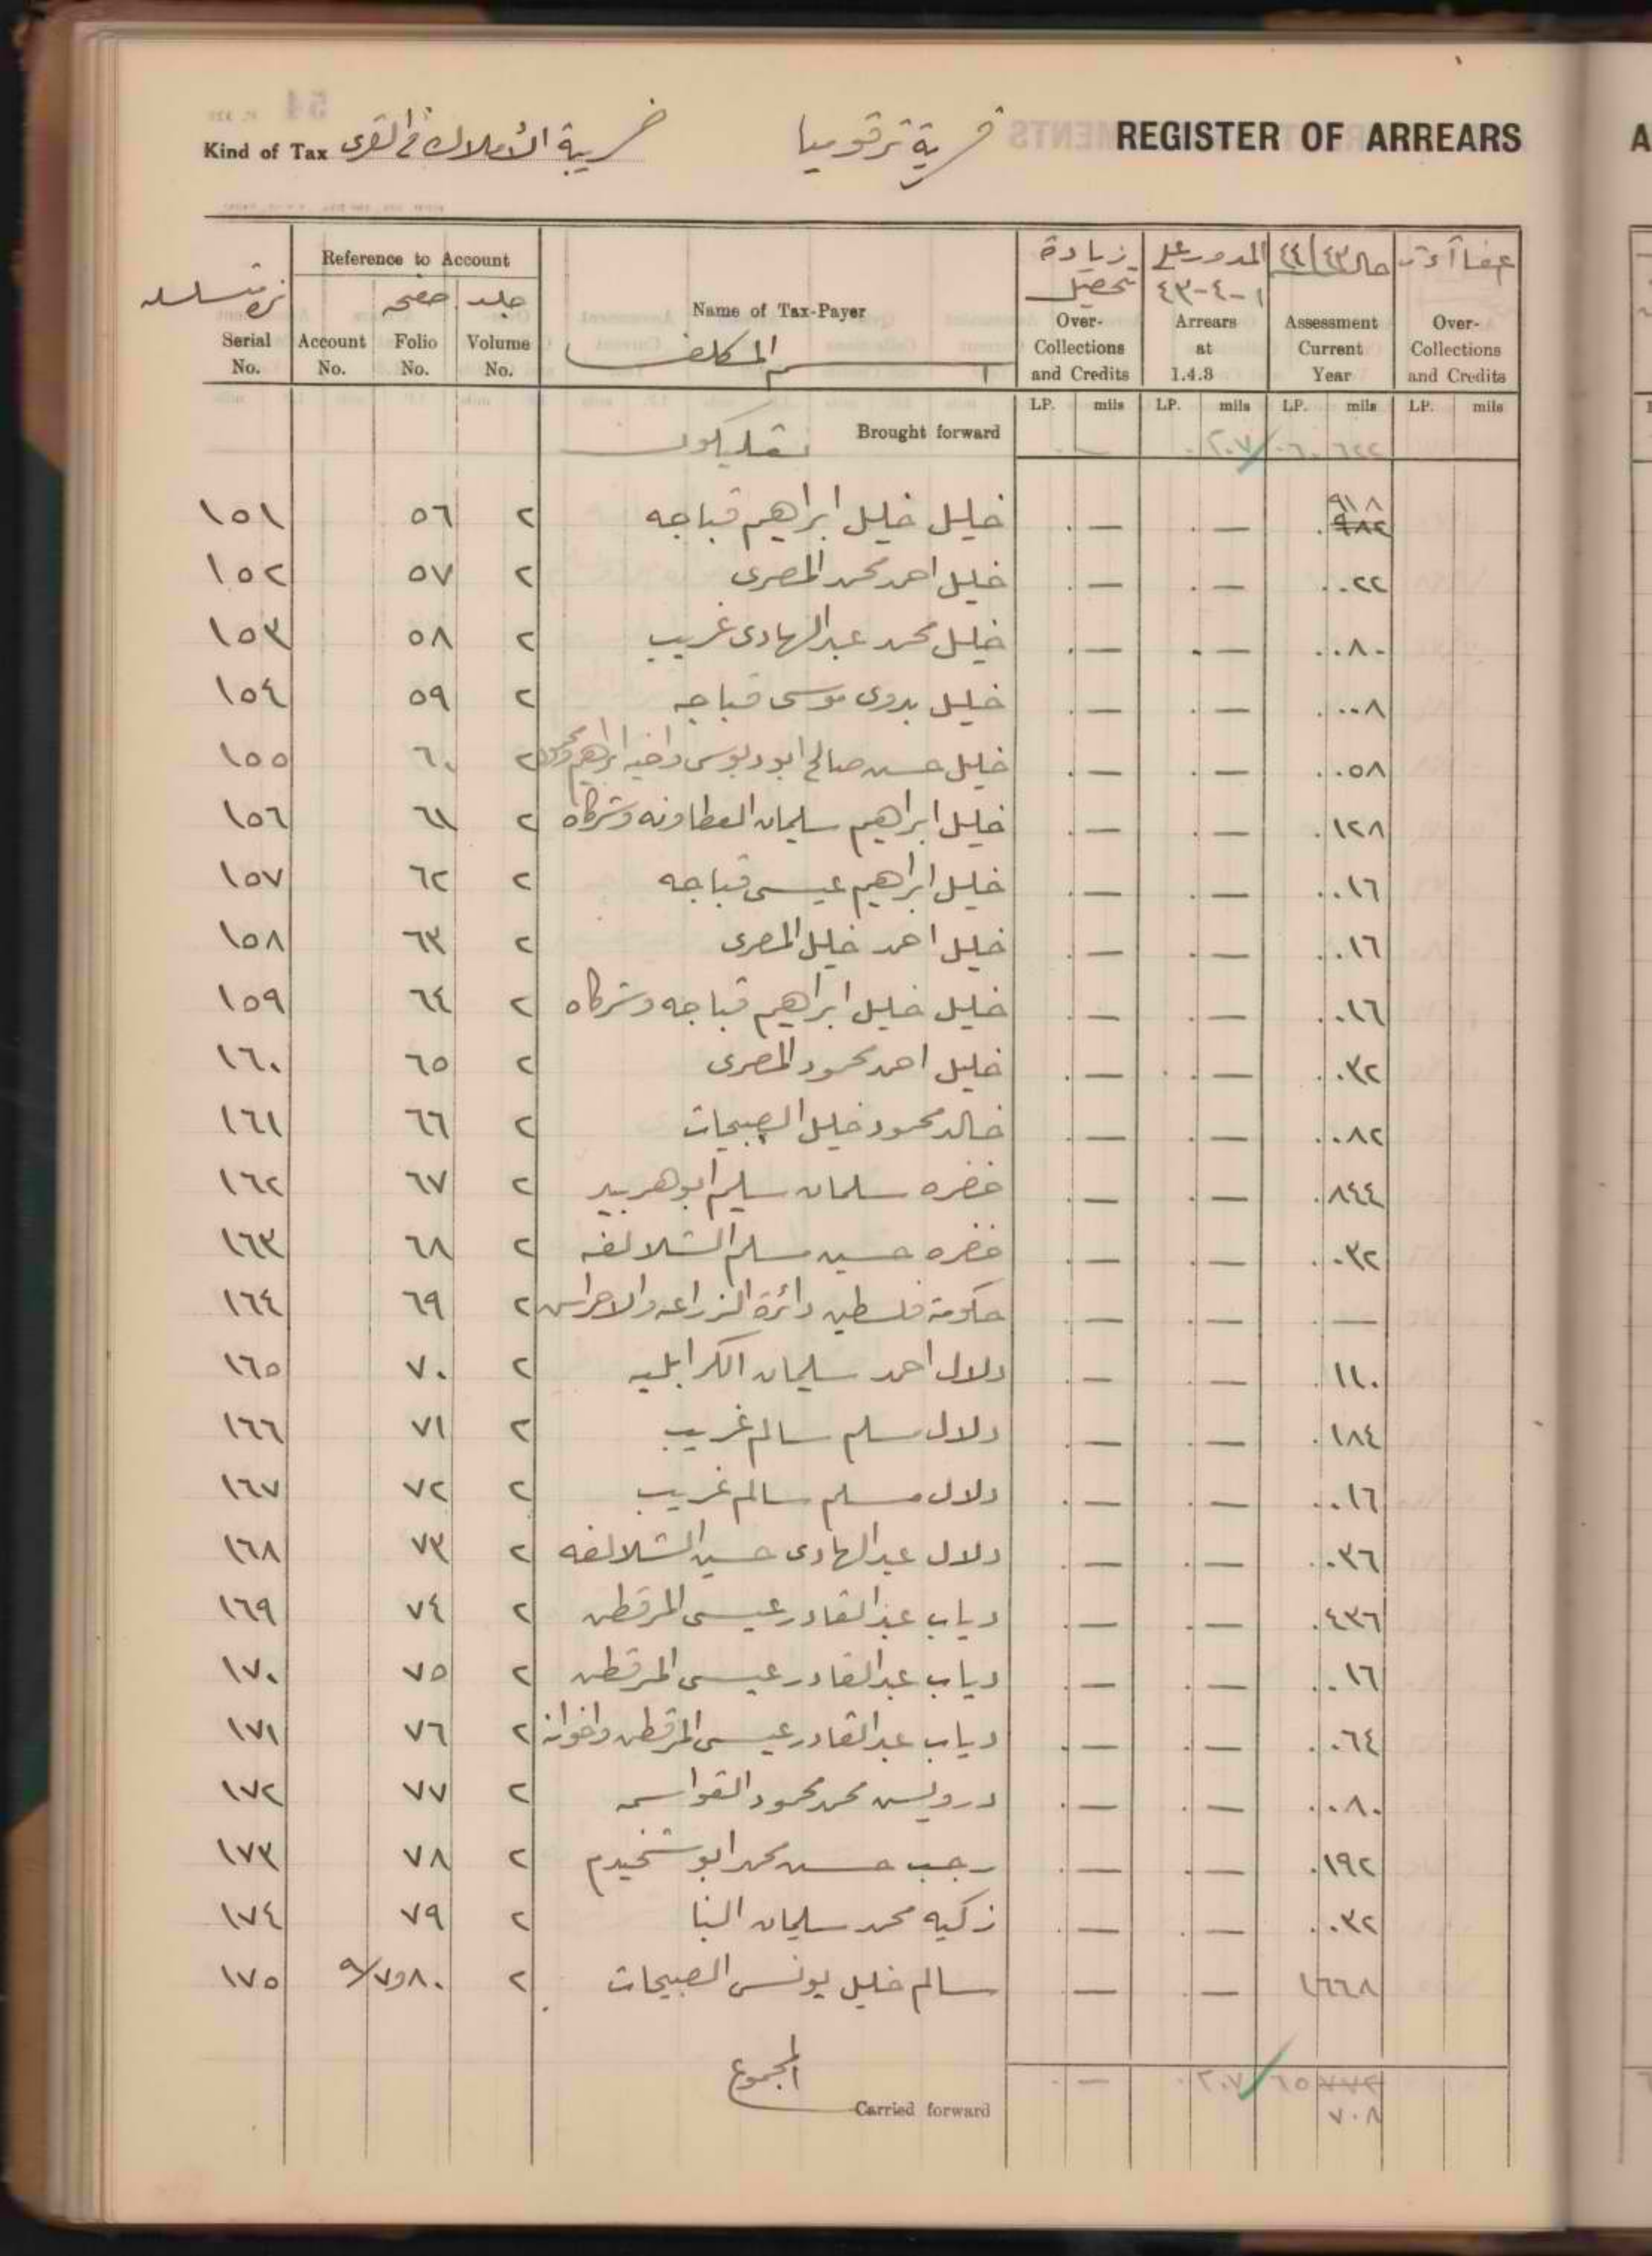 Kind of Tax ضريبة الأملاك في القرى قرية ترقوميا REGISTER OF ARREARS
Reference to Account زيادة المدور على حال ٤٣/٤٤
صفحه جلد Name of Tax-Payer تحصيل ١-٤-٤٣
Serial Account Folio Volume المكلف Over- Arrears Assessment Over-
No. No. No. No. Collections at Current Collections
and Credits 1.4.3 Year and Credits
LP. mils LP. mils LP. mils LP. mils
Brought forward — ٢٠٧ ٠٦٠ ٦٤٤
١٥١ ٥٦ ٢ خليل خليل ابراهيم قباجه — — ٩١٨ ٩٨٢
١٥٢ ٥٧ ٢ خليل احمد محمد المصرى — — ٠٢٢
١٥٣ ٥٨ ٢ خليل محمد عبد الهادى غريب — — ٠٨٠
١٥٤ ٥٩ ٢ خليل بدوى موسى قباجه — — ٠٠٨
١٥٥ ٦٠ ٢ خليل حسن صالح ابو دبوس واخيه ابراهيم ومحمود — — ٠٥٨
١٥٦ ٦١ ٢ خليل ابراهيم سليمان العطاونه وشركاه — — ١٢٨
١٥٧ ٦٢ ٢ خليل ابراهيم عيسى قباجه — — ٠١٦
١٥٨ ٦٣ ٢ خليل احمد خليل المصرى — — ٠١٦
١٥٩ ٦٤ ٢ خليل خليل ابراهيم قباجه وشركاه — — ٠١٦
١٦٠ ٦٥ ٢ خليل احمد محمود المصرى — — ٠٣٢
١٦١ ٦٦ ٢ خالد محمود خليل الصبيحات — — ٠٨٢
١٦٢ ٦٧ ٢ خضره سلمان سليم ابو هربيد — — ٨٤٤
١٦٣ ٦٨ ٢ خضره حسين مسلم الشلالفه — — ٠٣٢
١٦٤ ٦٩ ٢ حكومة فلسطين دائرة الزراعه والاحراش — — —
١٦٥ ٧٠ ٢ دلال احمد سليمان الكرابليه — — ١١٠
١٦٦ ٧١ ٢ دلال مسلم سالم غريب — — ١٨٤
١٦٧ ٧٢ ٢ دلال مسلم سالم غريب — — ٠١٦
١٦٨ ٧٣ ٢ دلال عبد الهادى حسين الشلالفه — — ٠٣٦
١٦٩ ٧٤ ٢ دياب عبد القادر عيسى المرقطن — — ٤٣٦
١٧٠ ٧٥ ٢ دياب عبد القادر عيسى المرقطن — — ٠١٦
١٧١ ٧٦ ٢ دياب عبد القادر عيسى المرقطن واخوانه — — ٠٦٤
١٧٢ ٧٧ ٢ درويش محمد محمود القواسمه — — ٠٨٠
١٧٣ ٧٨ ٢ رجب حسن محمد ابو شخيدم — — ١٩٢
١٧٤ ٧٩ ٢ زكيه محمد سليمان البنا — — ٠٣٢
١٧٥ ٨٠ ٢ سالم خليل يونس الصبيحات — — ١٦٦٨
المجموع — ٢٠٧ ٦٥ ٧٧٢
Carried forward ٧٠٨